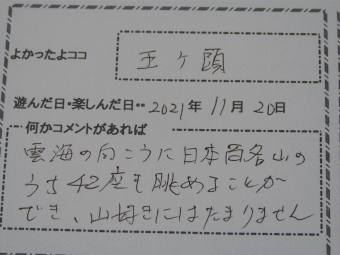 よかったよココ
王ケ頭
遊んだ日・楽しんだ日・・2021年11月20日
何かコメントがあれば
雲海の向こうに日本百名山の
うち42座も眺めることが
でき、山好きにはたまりません